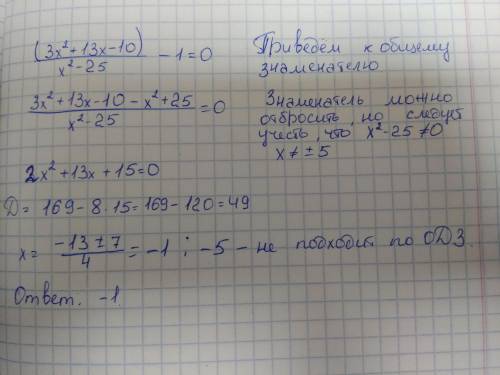 (3x²+13x-10)/(x²-25) - 1 = 0
Приведём к общему
знаменателю
(3x²+13x-10-x²+25)/(x²-25) = 0
Знаменатель можно
отбросить, но следует
учесть, что x²-25≠0
x≠±5
2x²+13x+15=0
D = 169-8·15=169-120=49
x = (-13±7)/4 = -1 ; -5 - не подходит по ОДЗ.
Ответ. -1